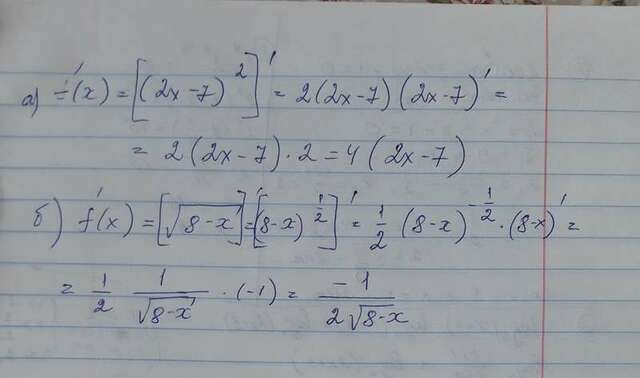 а) f'(x) = [(2x-7)²]' = 2(2x-7)(2x-7)' =
= 2(2x-7)·2 = 4(2x-7)
б) f'(x) = [√(8-x)]' = [(8-x)^(1/2)]' = 1/2 (8-x)^(-1/2) · (8-x)' =
= 1/2 · 1/√(8-x) · (-1) = -1/(2√(8-x))